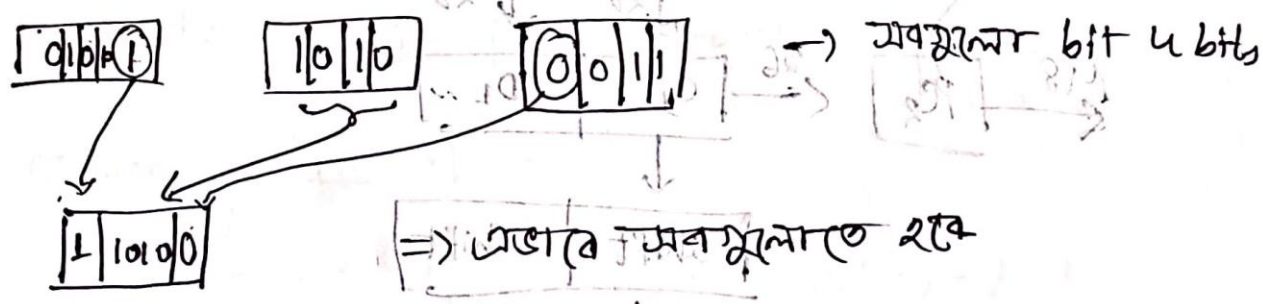 0101 1010 0011 → সবগুলো bit 4 bits
1 1010 0
⇒ এভাবে সবগুলোতে হবে